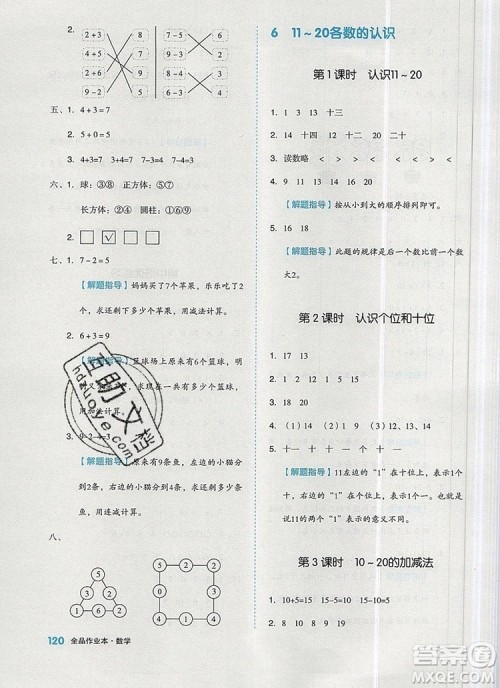 2.
2+3 8-5
7-3 9-7
6+3 4+5
9-2 5+2
4+3=7
2+3
8-2
7-5
6+3
9-4
五、1. 4+3=7
2. 5+0=5
3. 4+3=7 3+4=7 7-4=3
六、1. 球：③⑧ 正方体：⑤⑦
长方体：②④ 圆柱：①⑥⑨
2.
七、1. 7-2=5
【解题指导】妈妈买了7个苹果，乐乐吃了2
个，求还剩下多少个苹果，用减法计算。
2. 6+3=9
【解题指导】篮球场上原来有6个篮球，
明明又 3个，求 在 多少个篮球，
用加法计算。
3. 9-2-4=3
【解题指导】原来有9条鱼，左边的小猫分
2条，右边的小猫分4条，求还剩多少条，
用连减计算。
八、
120 全品作业本·数学
6 11~20各数的认识
第1课时 认识11~20
1. 11 12 13 十三
2. 14 十四 12 十二 20 二十
3. 读数略 < < < <
4. 9 11 13 14 15
【解题指导】按从小到大的顺序排列即可。
5. 16 18 20
【解题指导】此题的规律是后一个数比前一个数
大2。
第2课时 认识个位和十位
1. 17 13
2. 16 20
3. 12 15 18 19
4. (1)14 (2)20 (3)1 2 12
5. 1 一 十 1 一 一
【解题指导】11左边的“1”在十位上，表示1个
十，右边的“1”在个位上，表示1个一，
所以11中的两个“1”表示的意义不同。
第3课时 10~20的加减法
1. 10+5=15 15-5=10 15-10=5
答案圈
MXQE.COM